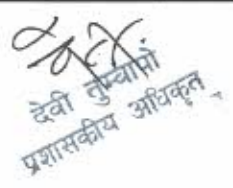 देवी तुम्बापो
प्रशासकीय अधिकृत